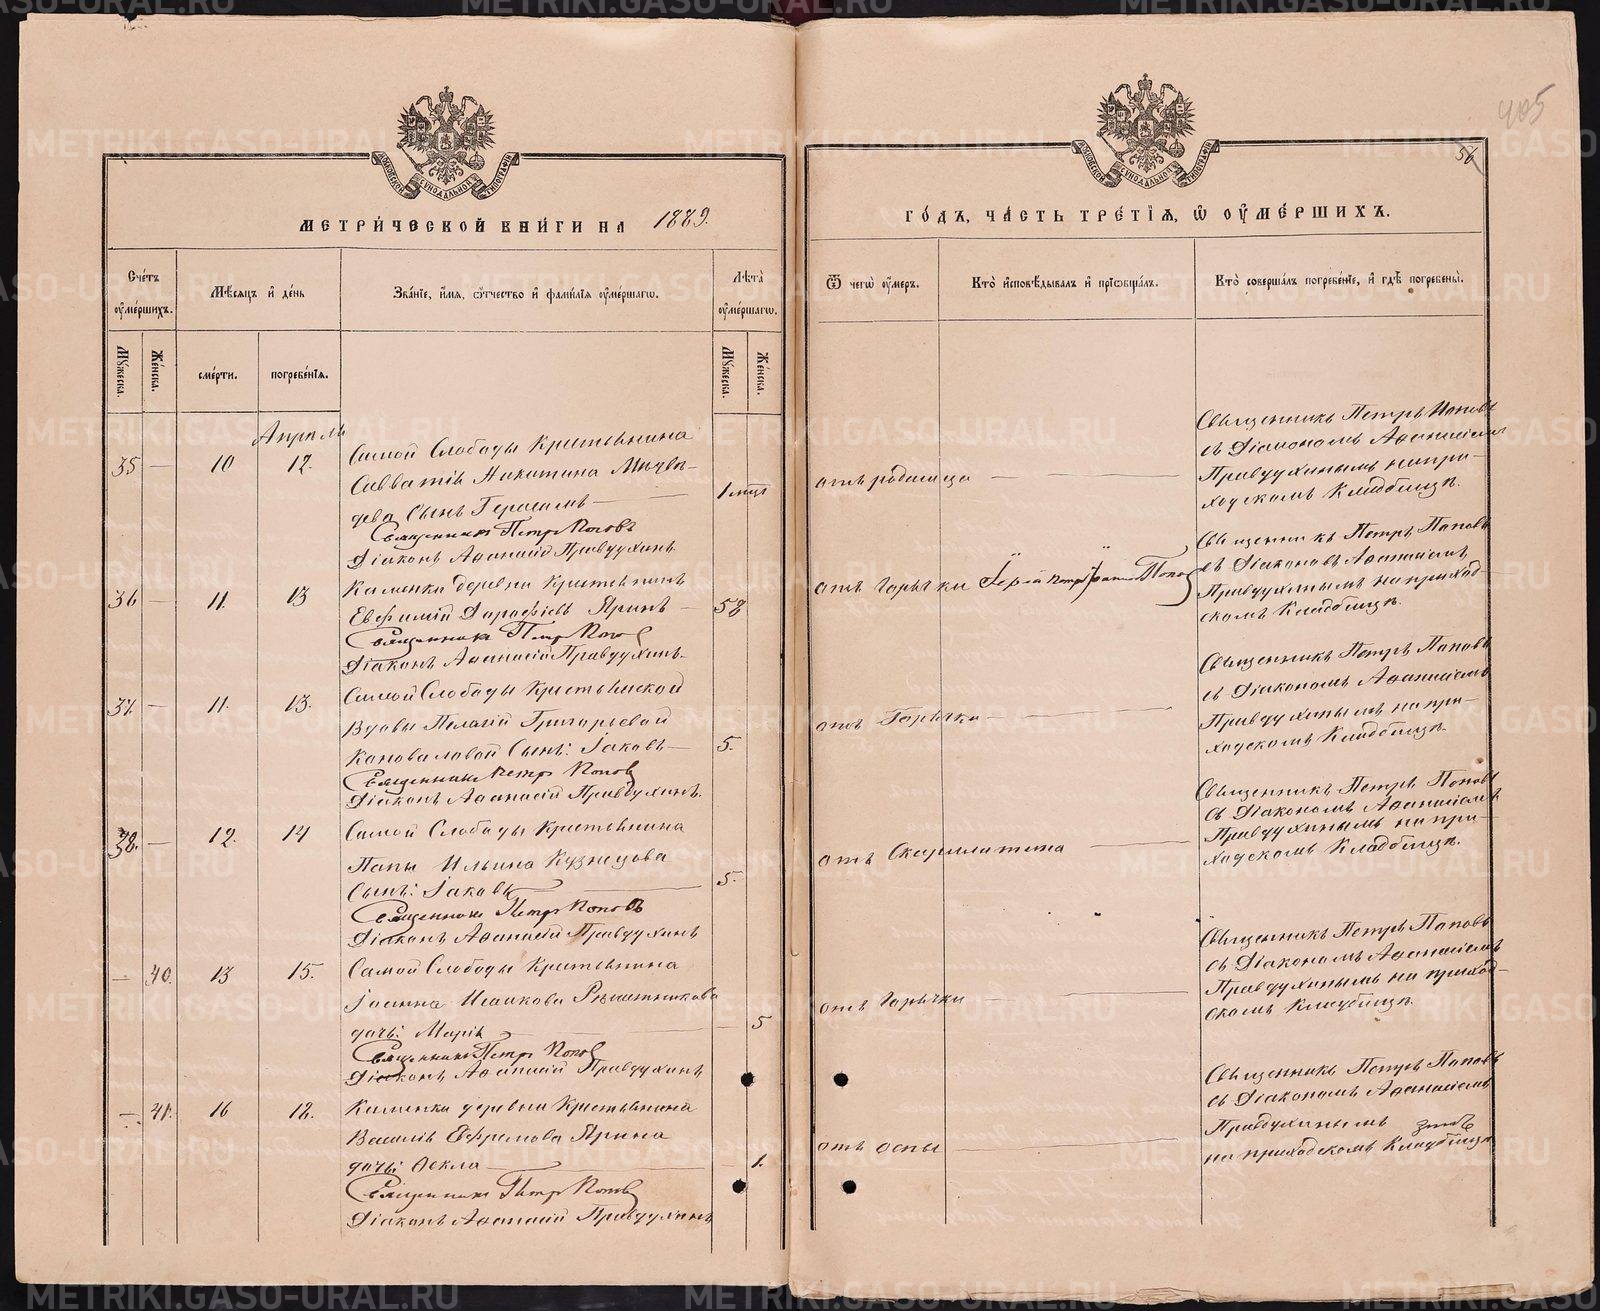 405
56
МОСКОВСКОЙ СѴНОДАЛЬНОЙ ТИПОГРАФІИ
МОСКОВСКОЙ СѴНОДАЛЬНОЙ ТИПОГРАФІИ
МЕТРИ́ЧЕСКОЙ КНИ́ГИ НА 1889.
ГО́ДЪ, ЧА́СТЬ ТРЕ́ТІѦ, Ѽ ОУ҆МЕ́РШИХЪ.
Сче́тъ оу҆ме́ршихъ.
Мꙋ́жеска.
Же́нска.
Мѣ́сяцъ и҆ де́нь
сме́рти.
погребе́нїѧ.
Зва́нїе, и҆́мѧ, ѻ҆́тчество и҆ фами́лїѧ оу҆ме́ршагѡ.
Лѣ́та оу҆ме́ршагѡ.
Мꙋ́жеска.
Же́нска.
Ѿ чегѡ̀ оу҆́меръ.
Кто̀ и҆сповѣ́дывалъ и҆ прїѡбща́лъ.
Кто̀ соверша́лъ погребе́нїе, и҆ гдѣ̀ погребены̀.
Апрѣль
35 — 10 12. Самой Слободы крестьянина
Савватія Никитина Медвѣ-
дева Сынъ Герасимъ — 1 мѣц.
Священникъ Петръ Поповъ
Діаконъ Аѳанасій Правдухинъ
отъ родимца —
Священникъ Петръ Поповъ
съ Діакономъ Аѳанасіемъ
Правдухинымъ на при-
ходскомъ Кладбищѣ.
36 — 11. 13 Каменки деревни Крестьянинъ
Евфимій Дорофѣевъ Яринъ — 58
Священникъ Петръ Поповъ
Діаконъ Аѳанасій Правдухинъ.
отъ горячки Іерей Петръ Поповъ
Священникъ Петръ Поповъ
съ Діакономъ Аѳанасіемъ
Правдухинымъ на приход-
скомъ Кладбищѣ.
37. — 11. 13. Самой Слободы Крестьянской
Вдовы Пелагіи Григорьевой
Коноваловой Сынъ: Іаковъ — 5.
Священникъ Петръ Поповъ
Діаконъ Аѳанасій Правдухинъ.
отъ Горячки —
Священникъ Петръ Поповъ
съ Діакономъ Аѳанасіемъ
Правдухинымъ на при-
ходскомъ Кладбищѣ.
38. — 12. 14 Самой Слободы Крестьянина
Ильина Кузнецова
Сынъ: Іаковъ — 5.
Священникъ Петръ Поповъ
Діаконъ Аѳанасій Правдухинъ
отъ Скарлатина —
Священникъ Петръ Поповъ
съ Діакономъ Аѳанасіемъ
Правдухинымъ на при-
ходскомъ Кладбищѣ.
— 40. 13 15. Самой Слободы Крестьянина
Іоанна Исакова Рѣшетникова
дочь: Марія — 5
Священникъ Петръ Поповъ
Діаконъ Аѳанасій Правдухинъ
отъ Горячки —
Священникъ Петръ Поповъ
съ Діакономъ Аѳанасіемъ
Правдухинымъ на приход-
скомъ Кладбищѣ.
— 41. 16 18. Каменки деревни Крестьянина
Василія Ефремова Ярина
дочь: Ѳекла — 1.
Священникъ Петръ Поповъ
Діаконъ Аѳанасій Правдухинъ
отъ оспы —
Священникъ Петръ Поповъ
съ Діакономъ Аѳанасіемъ
Правдухинымъ
на приходскомъ Кладбищѣ
METRIKI.GASO-URAL.RU